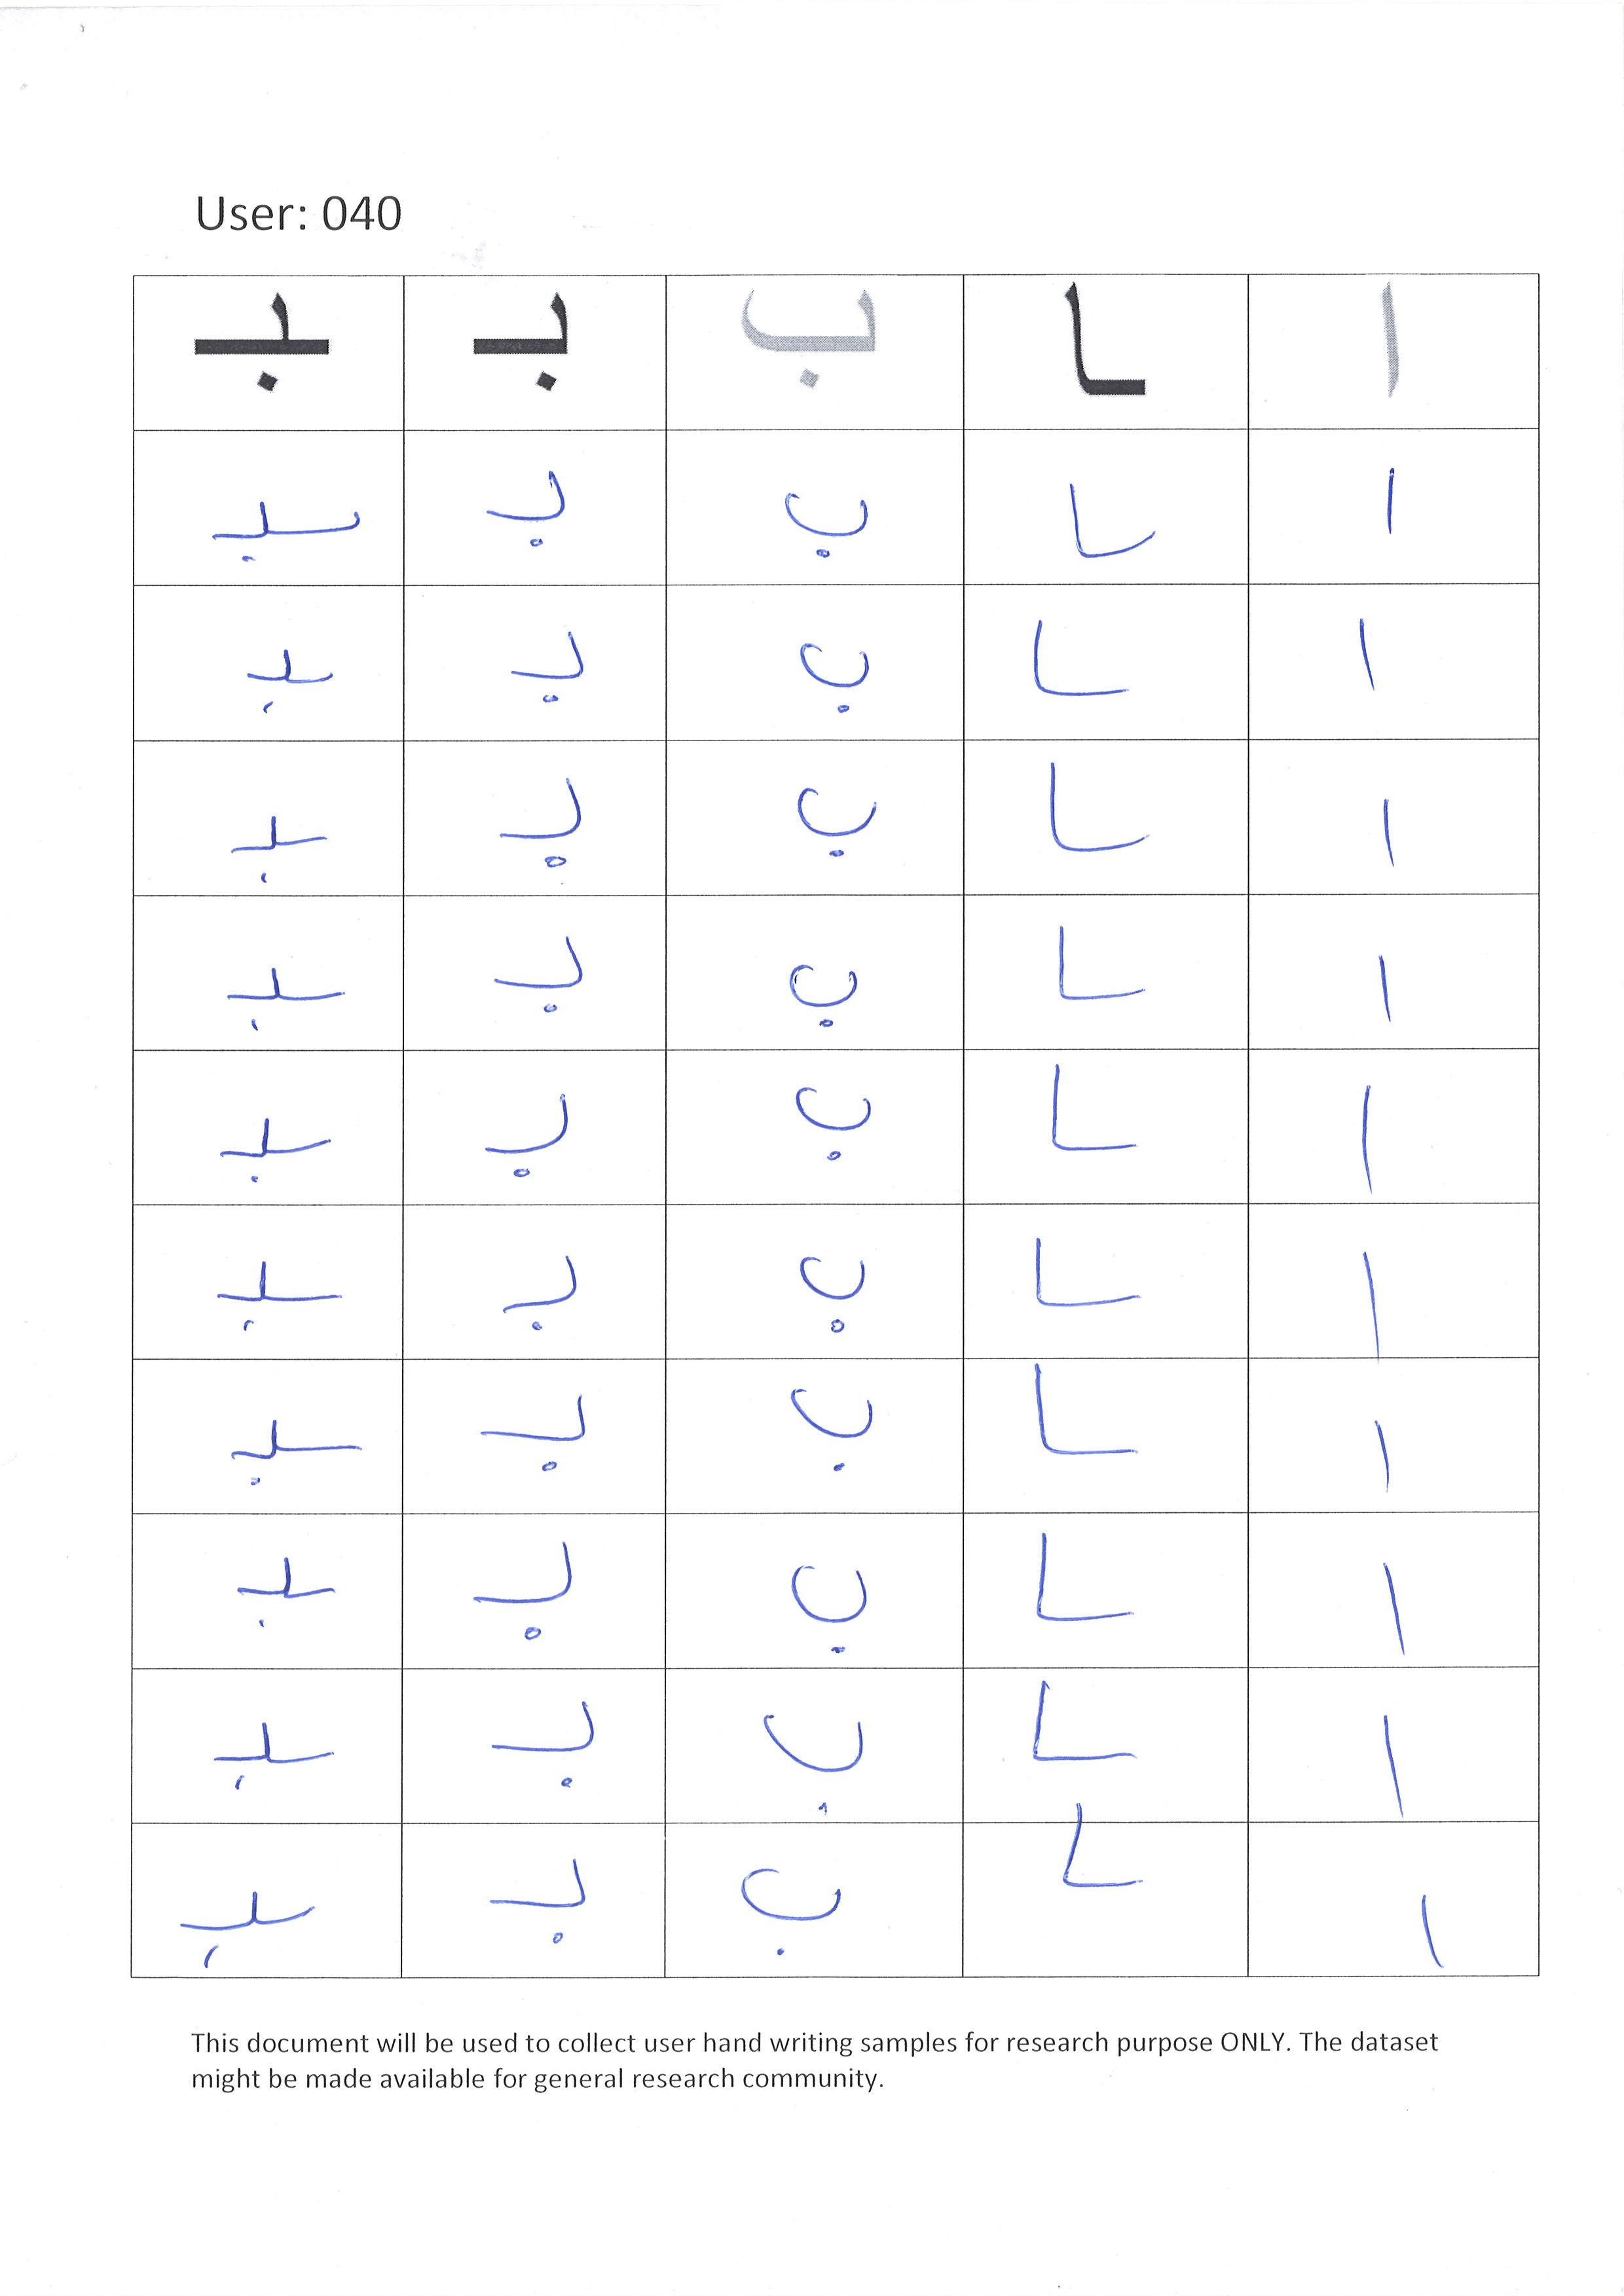 User: 040
ا ـا ب بـ ـبـ
ا ـا ب بـ ـبـ
ا ـا ب بـ ـبـ
ا ـا ب بـ ـبـ
ا ـا ب بـ ـبـ
ا ـا ب بـ ـبـ
ا ـا ب بـ ـبـ
ا ـا ب بـ ـبـ
ا ـا ب بـ ـبـ
ا ـا ب بـ ـبـ
ا ـا ب بـ ـبـ
This document will be used to collect user hand writing samples for research purpose ONLY. The dataset
might be made available for general research community.